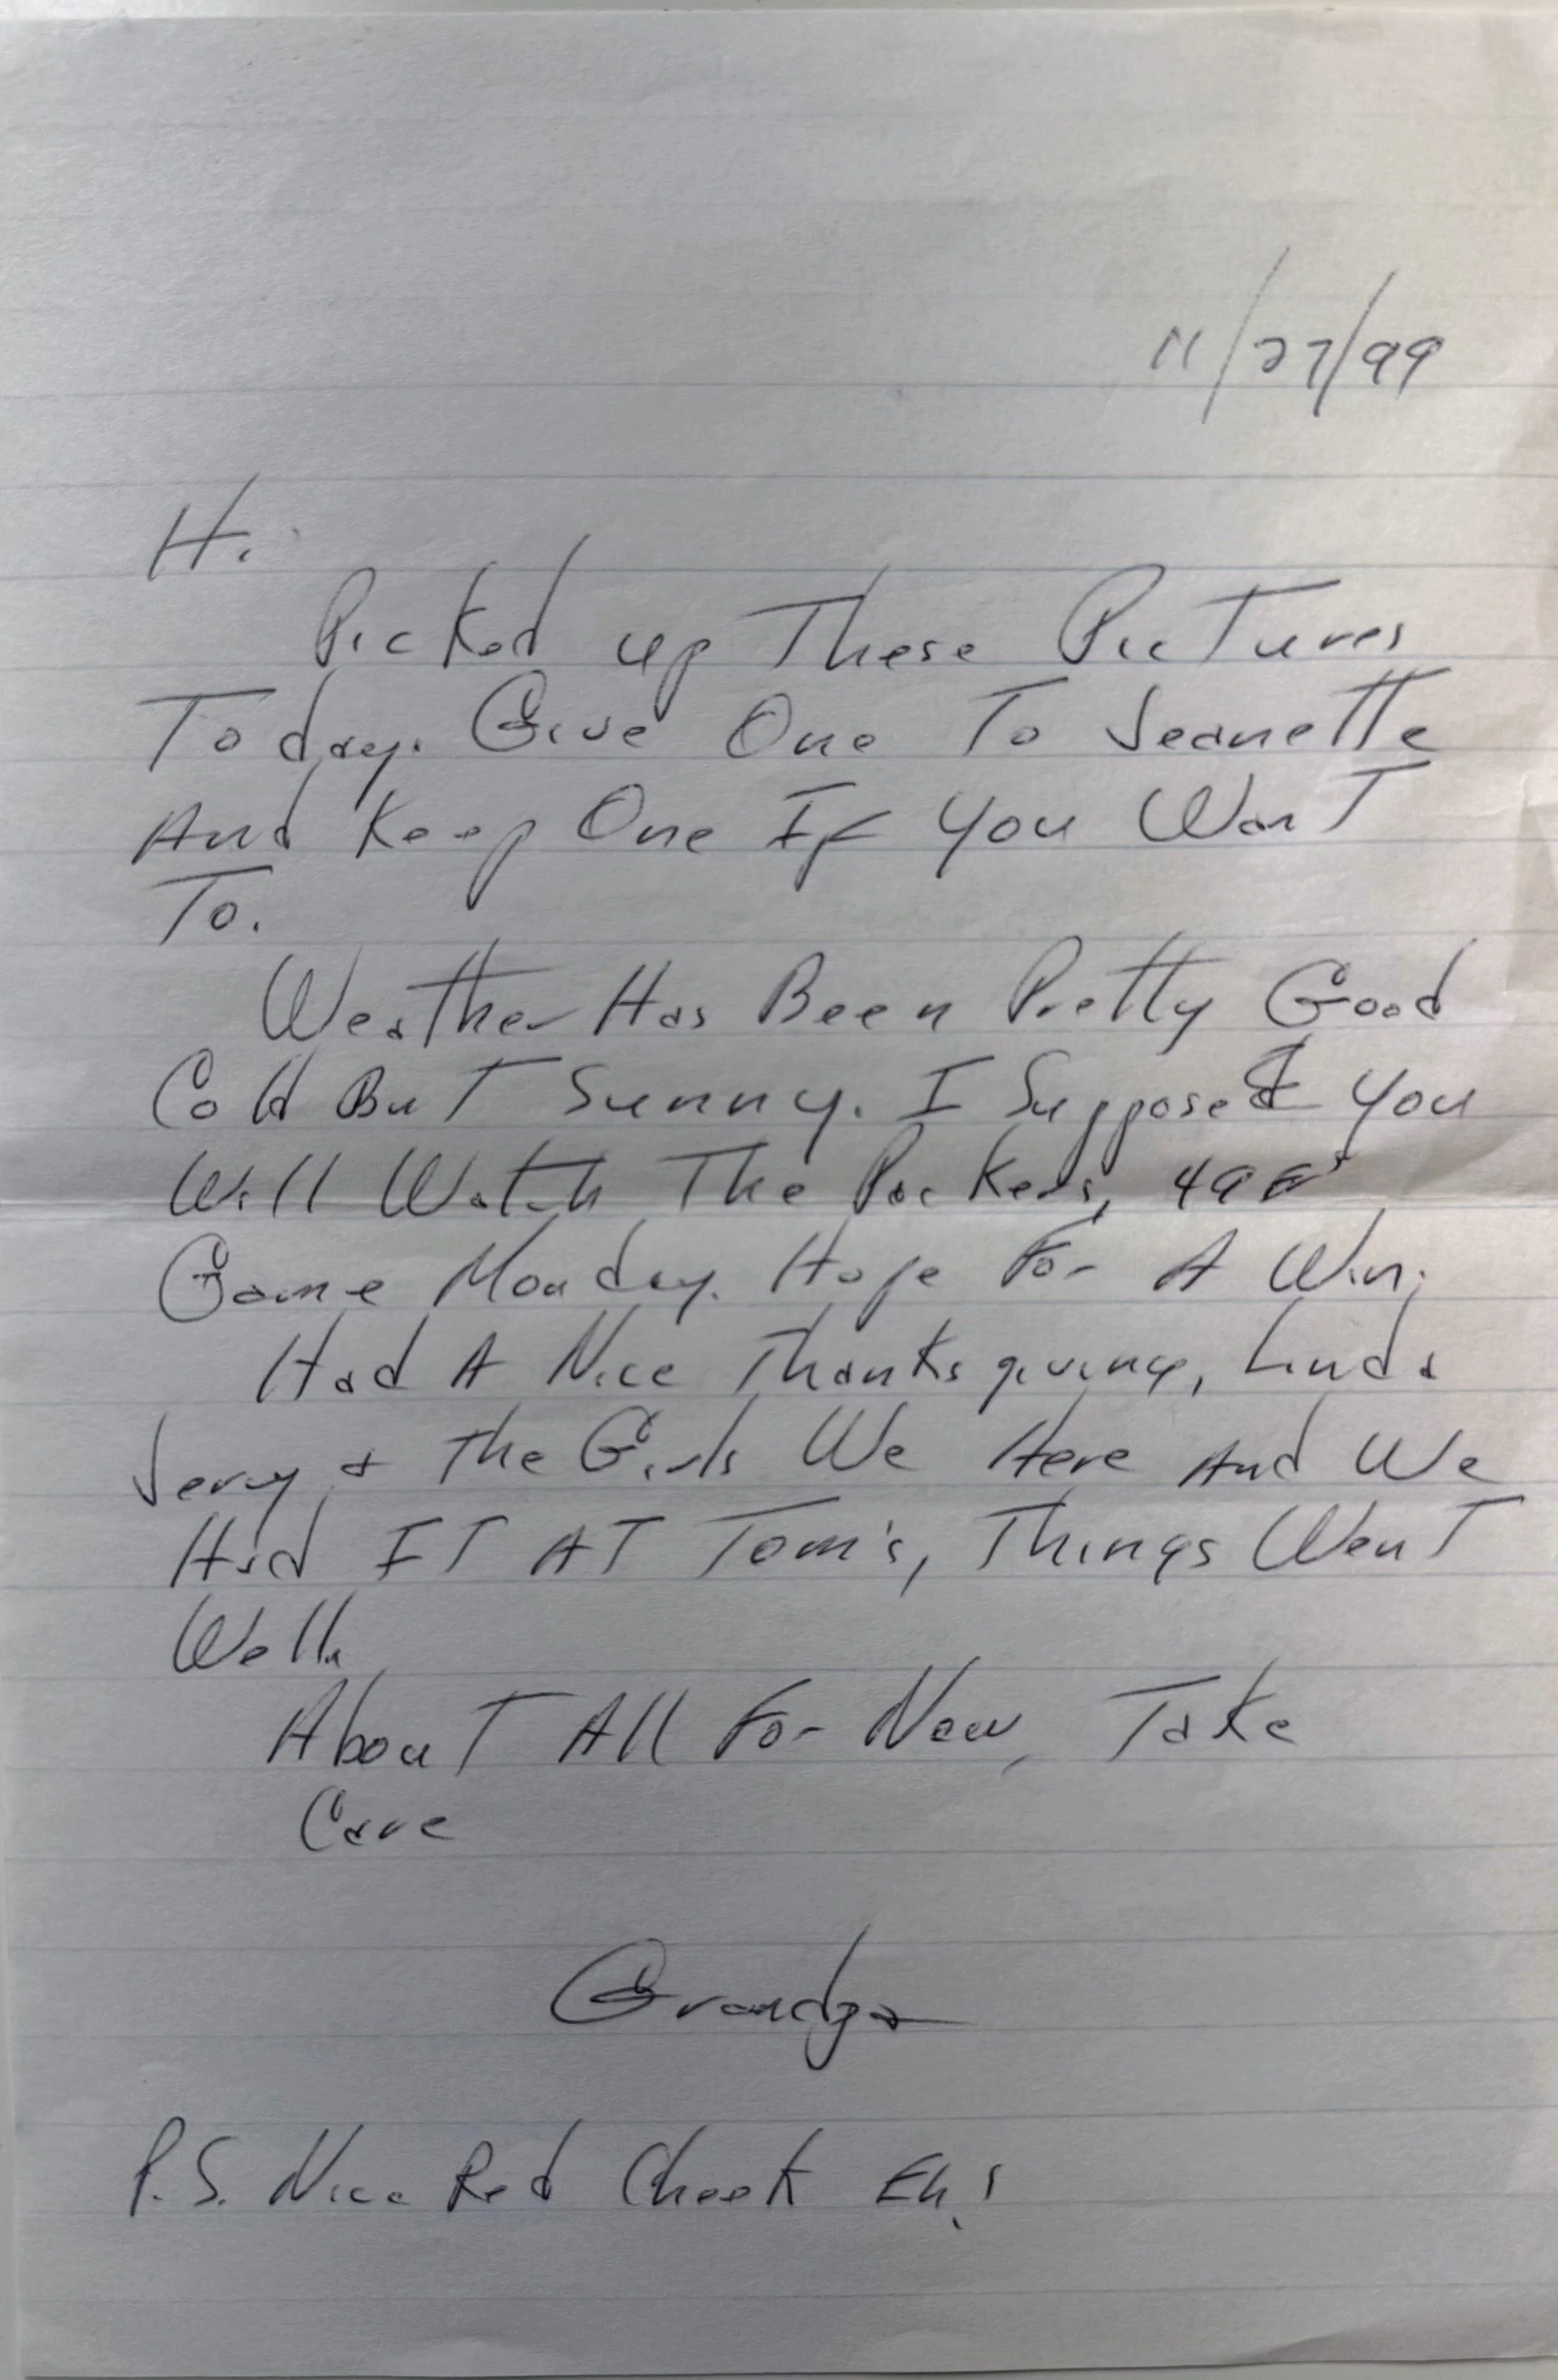 11/27/99
Hi.
Picked up These Pictures
Today. Give One To Jeanette
And Keep One If You Want
To.
Weather Has Been Pretty Good
Cold But Sunny. I Suppose You
Will Watch The Packers, 49er
Game Monday. Hope For A Win.
Had A Nice Thanksgiving, Linda
Jerry + The Girls We Here And We
Had IT AT Tom's, Things Went
Well.
About All For Now, Take
Care
Grandpa
P.S. Nice Red Cheek Eh!